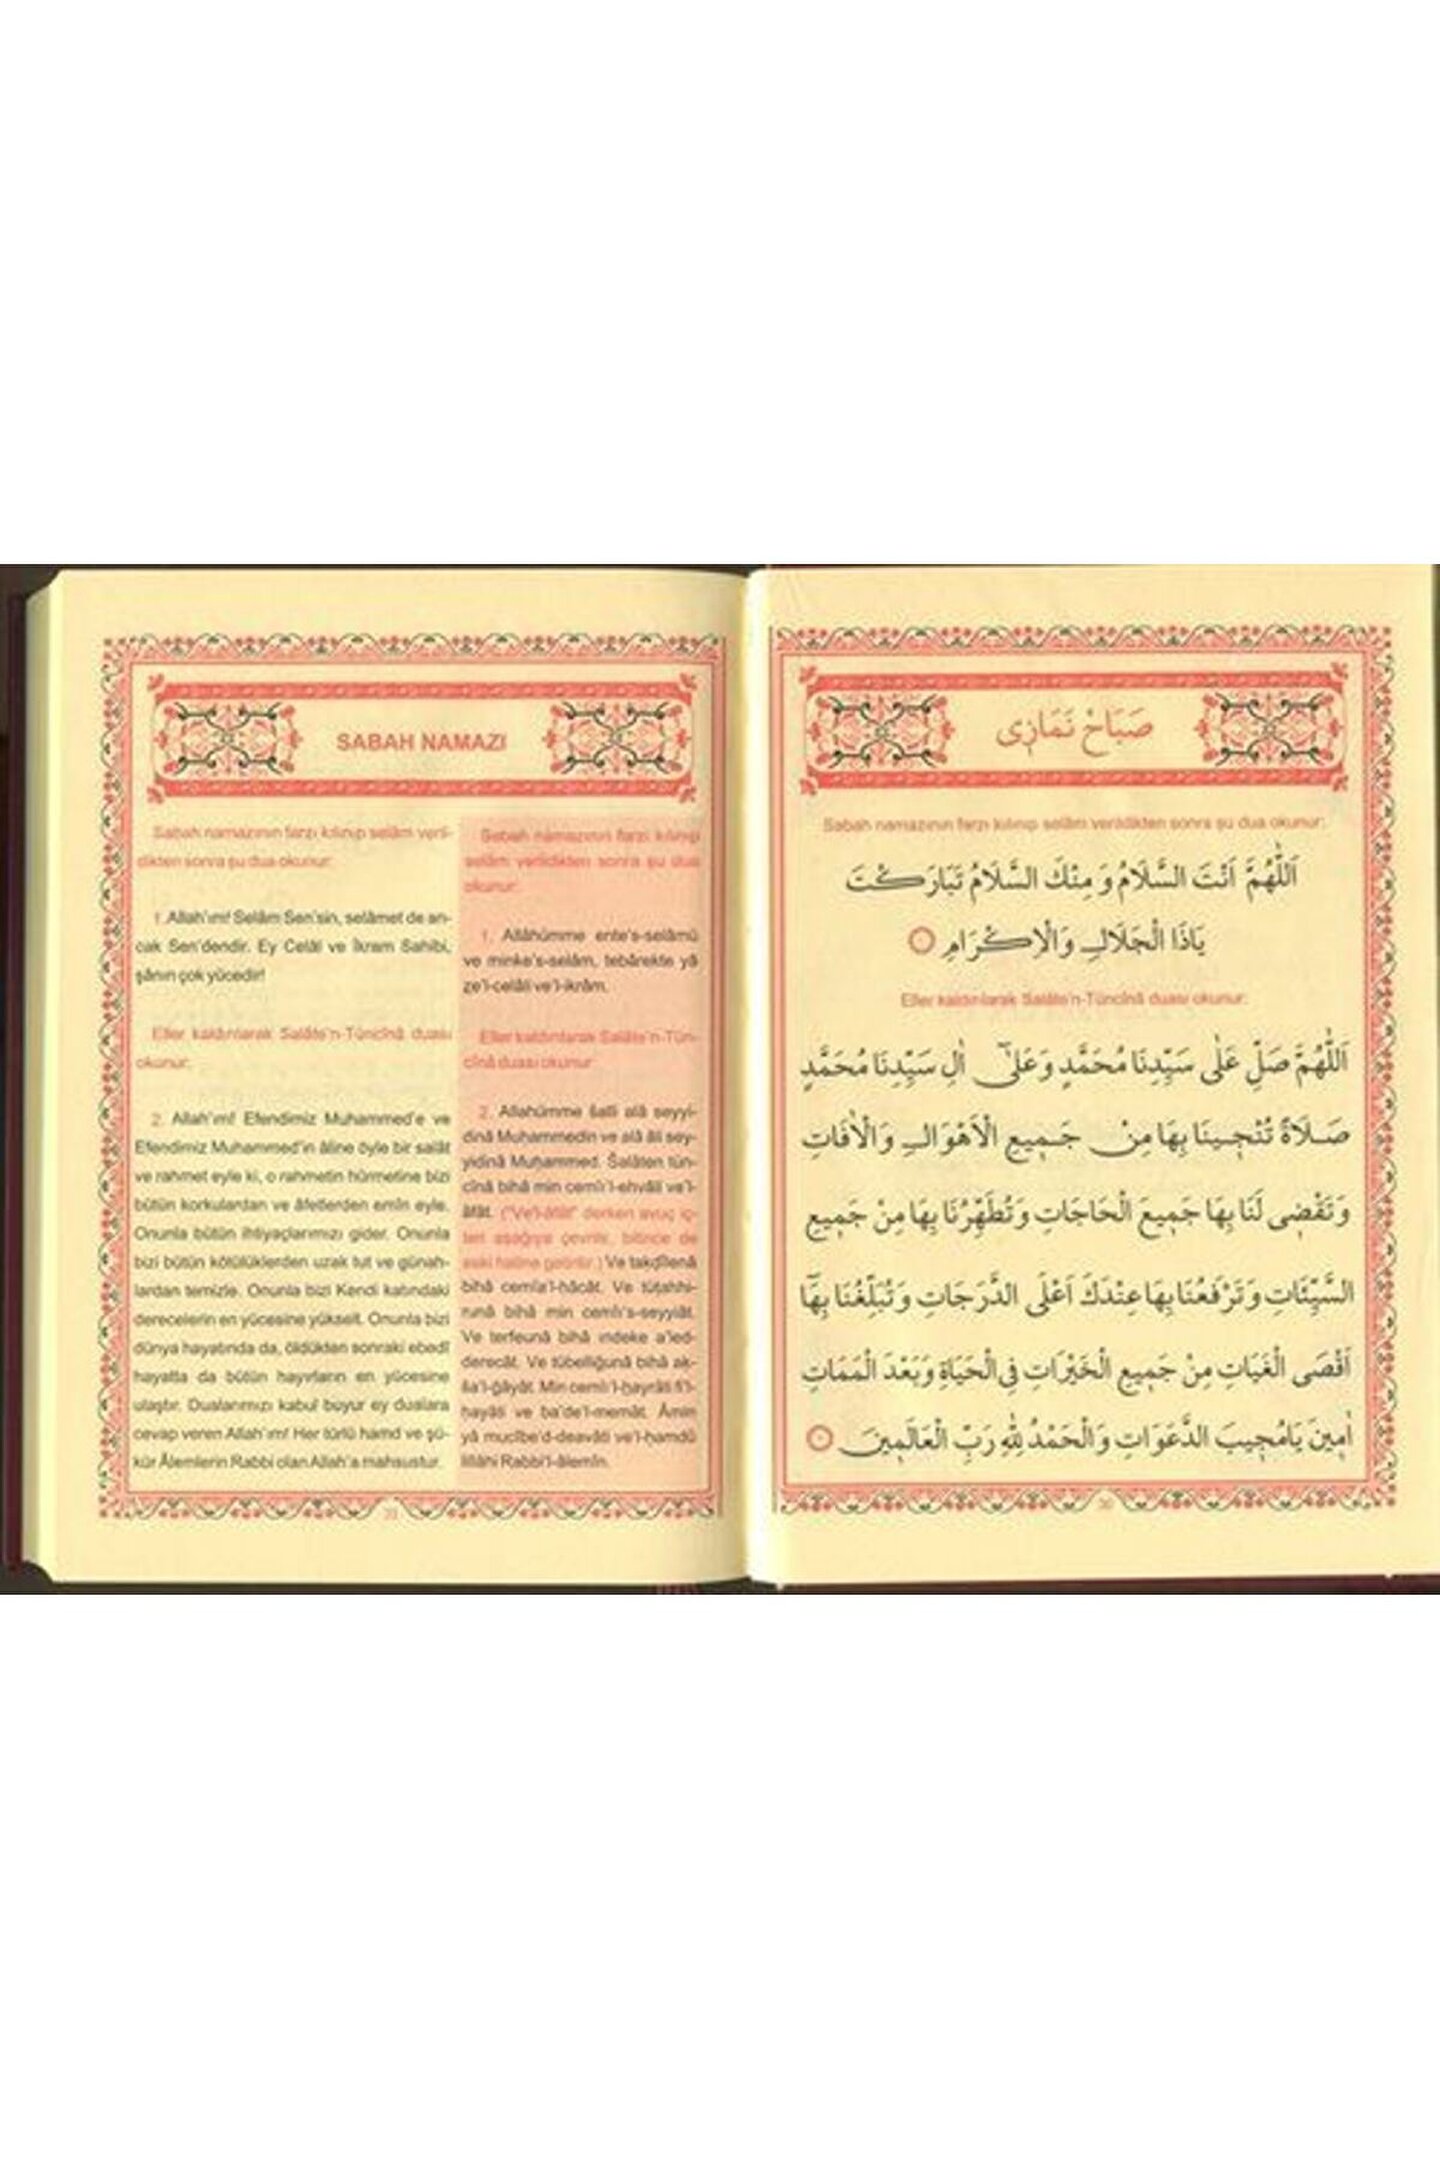 SABAH NAMAZI
Sabah namazının farzı kılınıp selâm veril-
dikten sonra şu dua okunur:
1. Allah'ım! Selâm Sen'sin, selâmet de an-
cak Sen'dendir. Ey Celâl ve İkram Sahibi,
şânın çok yücedir!
Eller kaldırılarak Salâte'n-Tüncînâ duası
okunur:
2. Allah'ım! Efendimiz Muhammed'e ve
Efendimiz Muhammed'in âline öyle bir salât
ve rahmet eyle ki, o rahmetin hürmetine bizi
bütün korkulardan ve âfetlerden emîn eyle.
Onunla bütün ihtiyaçlarımızı gider. Onunla
bizi bütün kötülüklerden uzak tut ve günah-
lardan temizle. Onunla bizi Kendi katındaki
derecelerin en yücesine yükselt. Onunla bizi
dünya hayatında da, öldükten sonraki ebedî
hayatta da bütün hayırların en yücesine
ulaştır. Dualarımızı kabul buyur ey dualara
cevap veren Allah'ım! Her türlü hamd ve şü-
kür Âlemlerin Rabbi olan Allah'a mahsustur.
Sabah namazının farzı kılınıp
selâm verildikten sonra şu dua
okunur:
1. Allâhümme ente's-selâmü
ve minke's-selâm, tebârekte yâ
ze'l-celâli ve'l-ikrâm.
Eller kaldırılarak Salâte'n-Tün-
cînâ duası okunur:
2. Allahümme šalli alâ seyyi-
dinâ Muhammedin ve alâ âli sey-
yidinâ Muḥammed. Šalâten tün-
cînâ bihâ min cemîı'l-ehvâli ve'l-
âfât. ("Ve'l-âfât" derken avuç iç-
leri aşağıya çevrilir, bitince de
eski haline getirilir.) Ve takḍîlenâ
bihâ cemîa'l-hâcât. Ve tüṭahhi-
runâ bihâ min cemîı's-seyyiât.
Ve terfeunâ bihâ ındeke a'led-
derecât. Ve tübelliğunâ bihâ ak-
ša'l-ğâyât. Min cemîı'l-ḫayrâti fi'l-
ḥayâti ve ba'de'l-memât. Âmin
yâ mucîbe'd-deavâti ve'l-ḥamdü
lillâhi Rabbi'l-âlemîn.
صَبَاحْ نَمَازِى
Sabah namazının farzı kılınıp selâm verildikten sonra şu dua okunur:
اَللّٰهُمَّ اَنْتَ السَّلَامُ وَمِنْكَ السَّلَامُ تَبَارَكْتَ
يَاذَا الْجَلَالِ وَالْاِكْرَامِ
Eller kaldırılarak Salâte'n-Tüncînâ duası okunur:
اَللّٰهُمَّ صَلِّ عَلٰى سَيِّدِنَا مُحَمَّدٍ وَعَلٰٓى اٰلِ سَيِّدِنَا مُحَمَّدٍ
صَلَاةً تُنْجِينَا بِهَا مِنْ جَمِيعِ الْاَهْوَالِ وَالْاٰفَاتِ
وَتَقْضِى لَنَا بِهَا جَمِيعَ الْحَاجَاتِ وَتُطَهِّرُنَا بِهَا مِنْ جَمِيعِ
السَّيِّئَاتِ وَتَرْفَعُنَا بِهَا عِنْدَكَ اَعْلَى الدَّرَجَاتِ وَتُبَلِّغُنَا بِهَٓا
اَقْصَى الْغَيَاتِ مِنْ جَمِيعِ الْخَيْرَاتِ فِى الْحَيَاةِ وَبَعْدَ الْمَمَاتِ
اٰمِينَ يَامُجِيبَ الدَّعَوَاتِ وَالْحَمْدُ لِلّٰهِ رَبِّ الْعَالَمِينَ